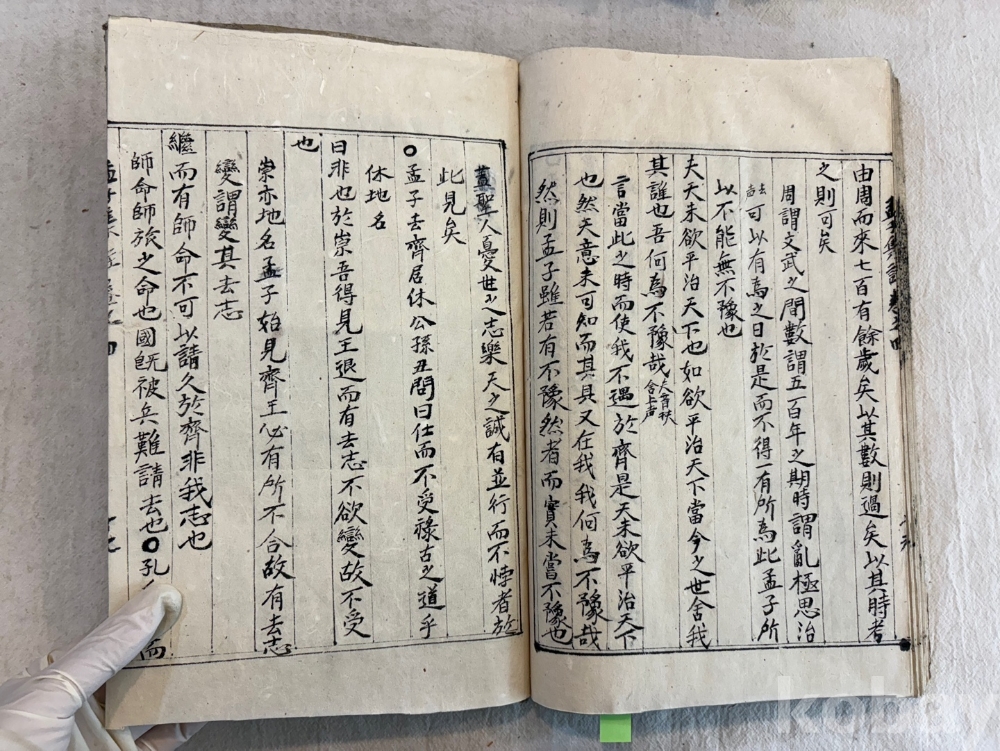 由周而來七百有餘歲矣以其數則過矣以其時考
之則可矣
周謂文武之間數謂五百年之期時謂亂極思治
可以有為之日於是而不得一有所為此孟子所
以不能無不豫也
夫天未欲平治天下也如欲平治天下當今之世舍我
其誰也吾何為不豫哉
舍上声
言當此之時而使我不遇於齊是天未欲平治天下
也然天意未可知而其具又在我我何為不豫哉
然則孟子雖若有不豫然者而實未嘗不豫也
蓋聖人憂世之志樂天之誠有並行而不悖者於
此見矣
○孟子去齊居休公孫丑問曰仕而不受祿古之道乎
休地名
曰非也於崇吾得見王退而有去志不欲變故不受
也
崇亦地名孟子始見齊王必有所不合故有去志
變謂變其去志
繼而有師命不可以請久於齊非我志也
師命師旅之命也國旣被兵難請去也○孔